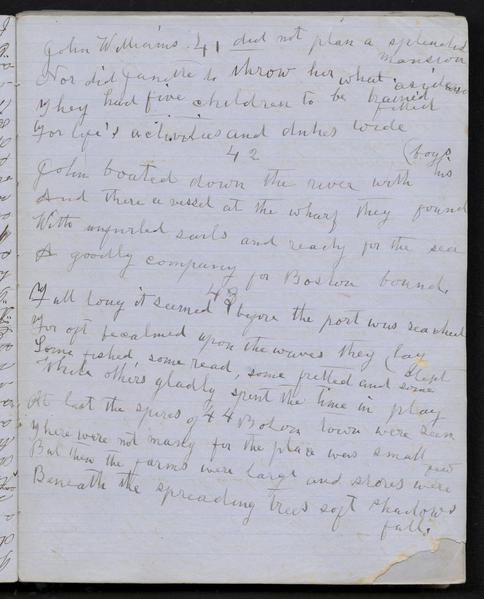 John Williams 41 did not plan a splendid
mansion
Nor did Janette to throw her what aside
They had five children to be trained
fitted
For life's activities and duties wide
42
John boated down the river with (boys
his
And there a vessel at the wharf they found
With unfurled sails and ready for the sea
A goodly company for Boston bound.
43
Full long it seemed before the port was reached
For oft becalmed upon the waves they lay
Some fished, some read, some fretted and some
slept
While others gladly spent the time in play
44
At last the spires of Boston town were seen
There were not many for the place was small
But then the farms were large and stores were
few
Beneath the spreading trees soft shadows
fall.